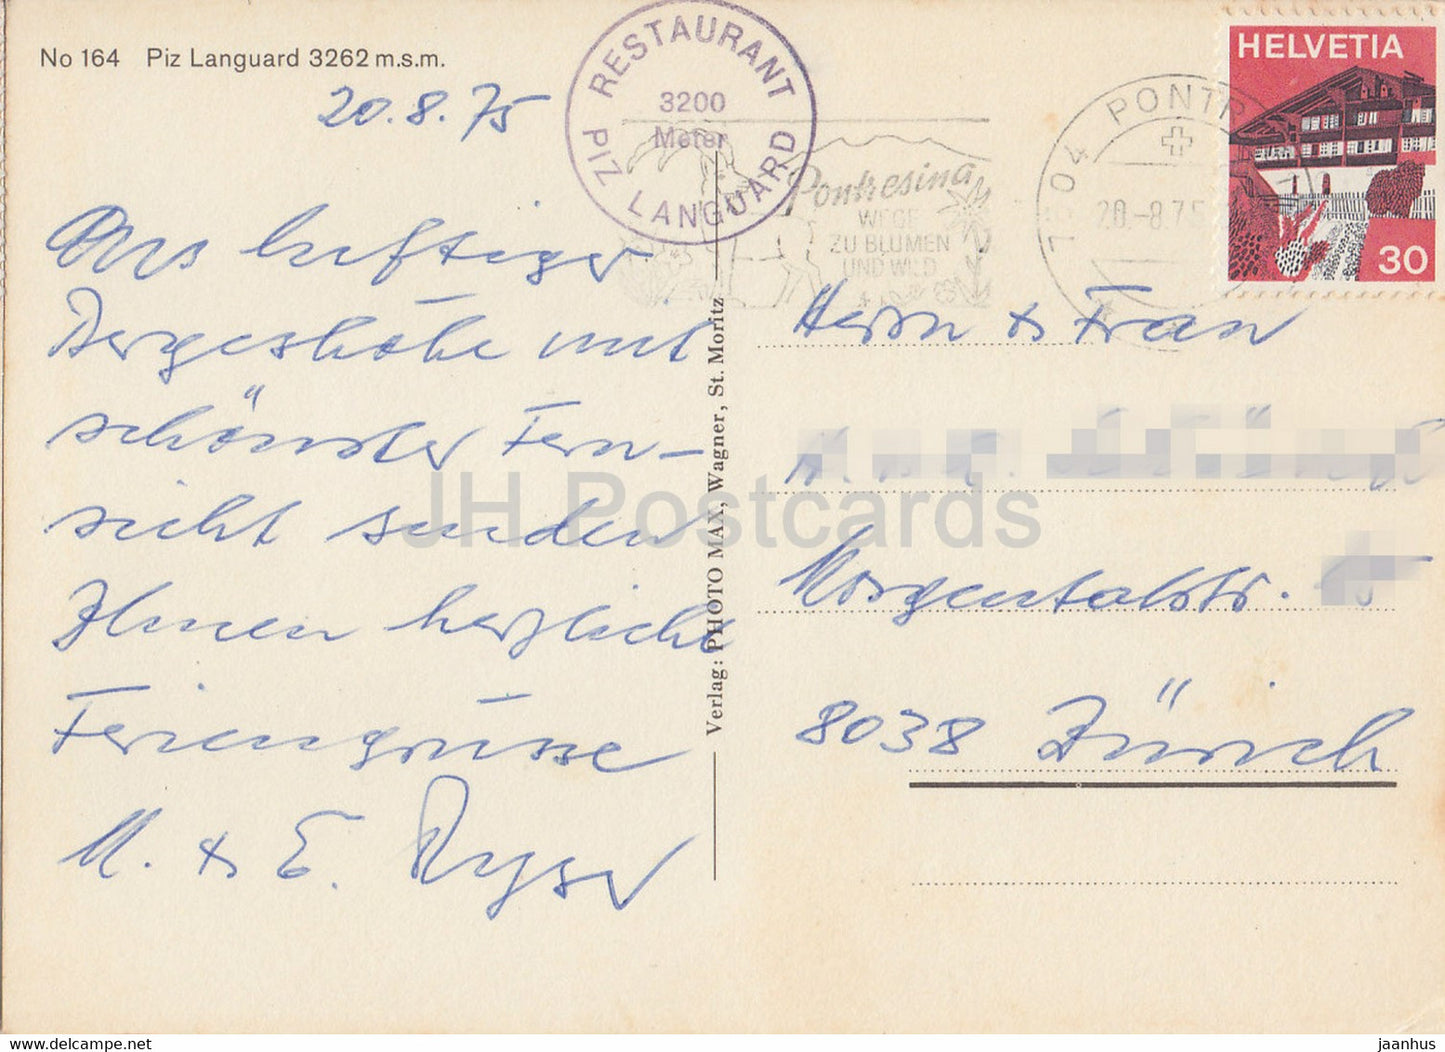 No 164 Piz Languard 3262 m.s.m.
20.8.75
RESTAURANT
3200
Meter
PIZ LANGUARD
Pontresina
WEGE
ZU BLUMEN
UND WILD
PONTR
20.-8.75
HELVETIA
30
Aus luftiger
Bergeshöhe mit
schönster Fern-
sicht senden
Ihnen herzliche
Feriengrüsse
M. & E. Ryser
Verlag: PHOTO MAX, Wagner, St. Moritz
Herrn & Frau
Morgentalstr.
8038 Zürich
JH Postcards
www.delcampe.net
jaanhus